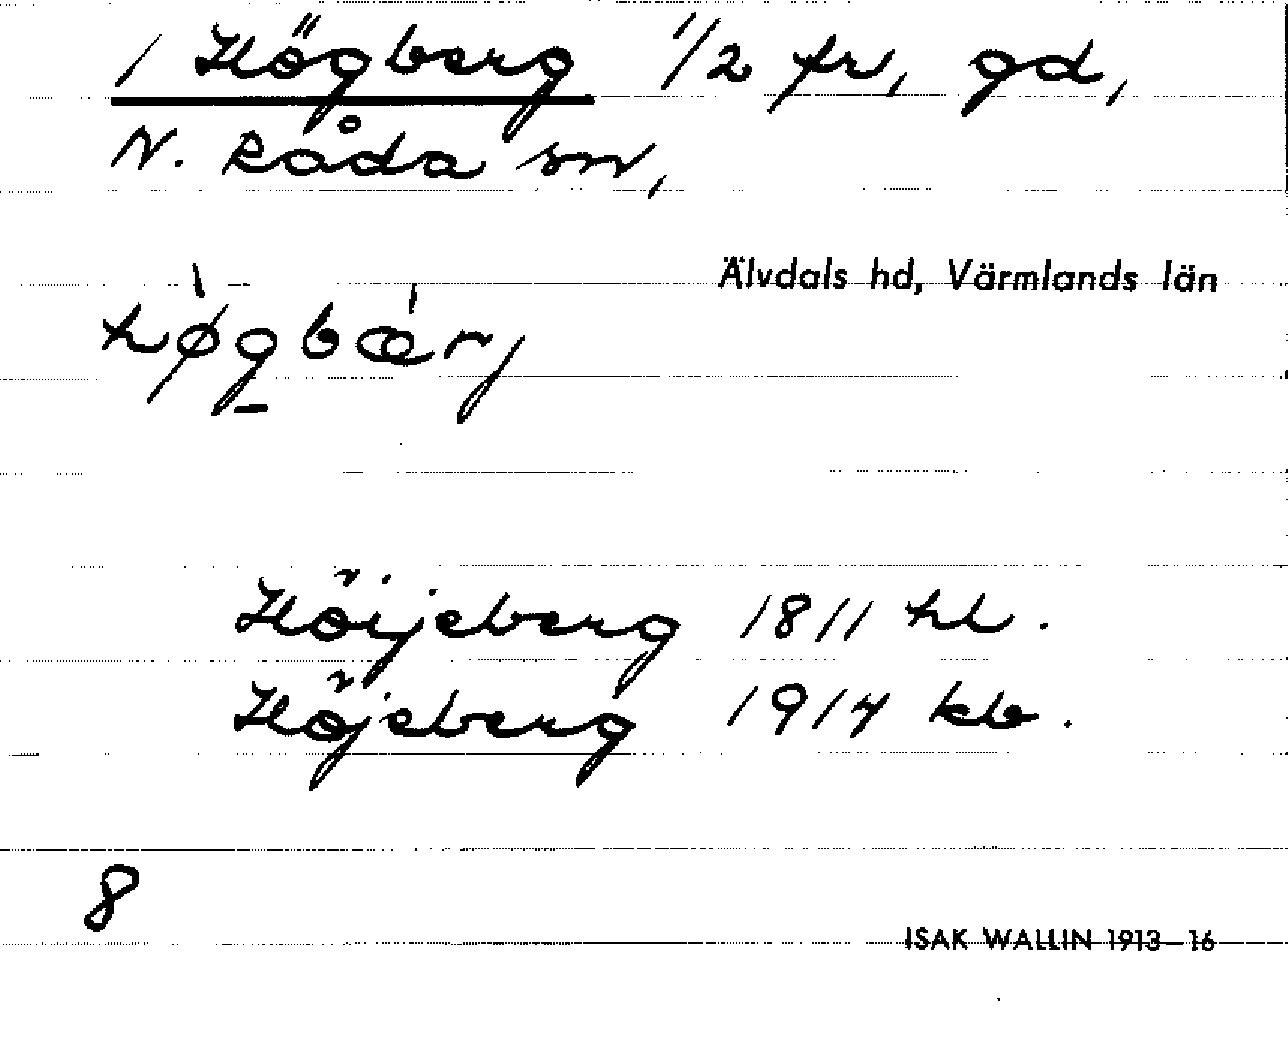 1 Högberg 1/2 fr, gd,
N. Råda sn,
Älvdals hd, Värmlands län
hǿgbǽrj
Höijeberg 1811 hl.
Höjeberg 1914 kb.
8
ISAK WALLIN 1913–16